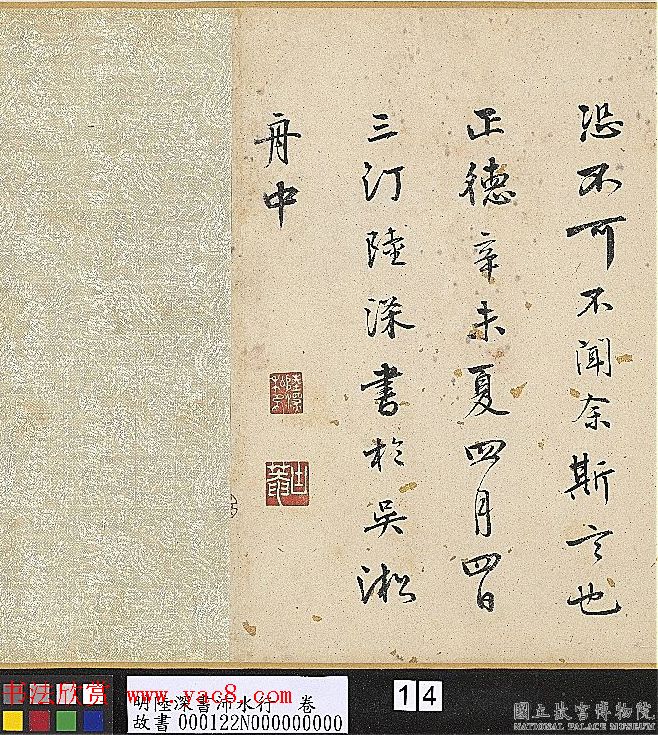 恐不可不闻余斯言也
正德辛未夏四月四日
三汀陸深書於吳淞
舟中
书法欣赏 www.yac8.com
明陸深書沛水行 卷
故書 000122N000000000
14
國立故宮博物院
NATIONAL PALACE MUSEUM